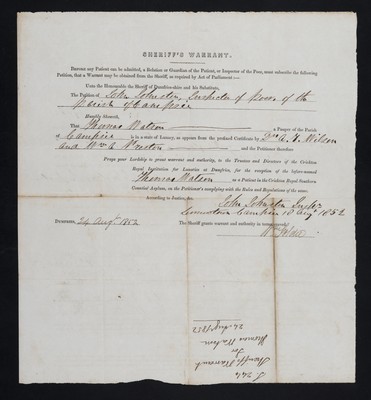 SHERIFF'S WARRANT.
BEFORE any Patient can be admitted, a Relation or Guardian of the Patient, or Inspector of the Poor, must subscribe the following
Petition, that a Warrant may be obtained from the Sheriff, as required by Act of Parliament:—
Unto the Honourable the Sheriff of Dumfries-shire and his Substitute,
The Petition of John Johnston, Inspector of Poor of the
Parish of Campsie
Humbly Sheweth,
That Thomas Watson a Pauper of the Parish
of Campsie is in a state of Lunacy, as appears from the produced Certificate by Drs A. F. Wilson
and Wm and the Petitioner therefore
Prays your Lordship to grant warrant and authority, to the Trustees and Directors of the Crichton
Royal Institution for Lunatics at Dumfries, for the reception of the before-named
Thomas Watson as a Patient in the Crichton Royal Southern
Counties Asylum, on the Petitioner's complying with the Rules and Regulations of the same.
According to Justice, &c.
John Johnston Inspr
Lennoxtown Campsie 18 Augt 1852
DUMFRIES, 24 Augt. 1852 The Sheriff grants warrant and authority in terms prayed
Wm
Sheriff's Warrant
for
Thomas Watson
24 Augt 1852